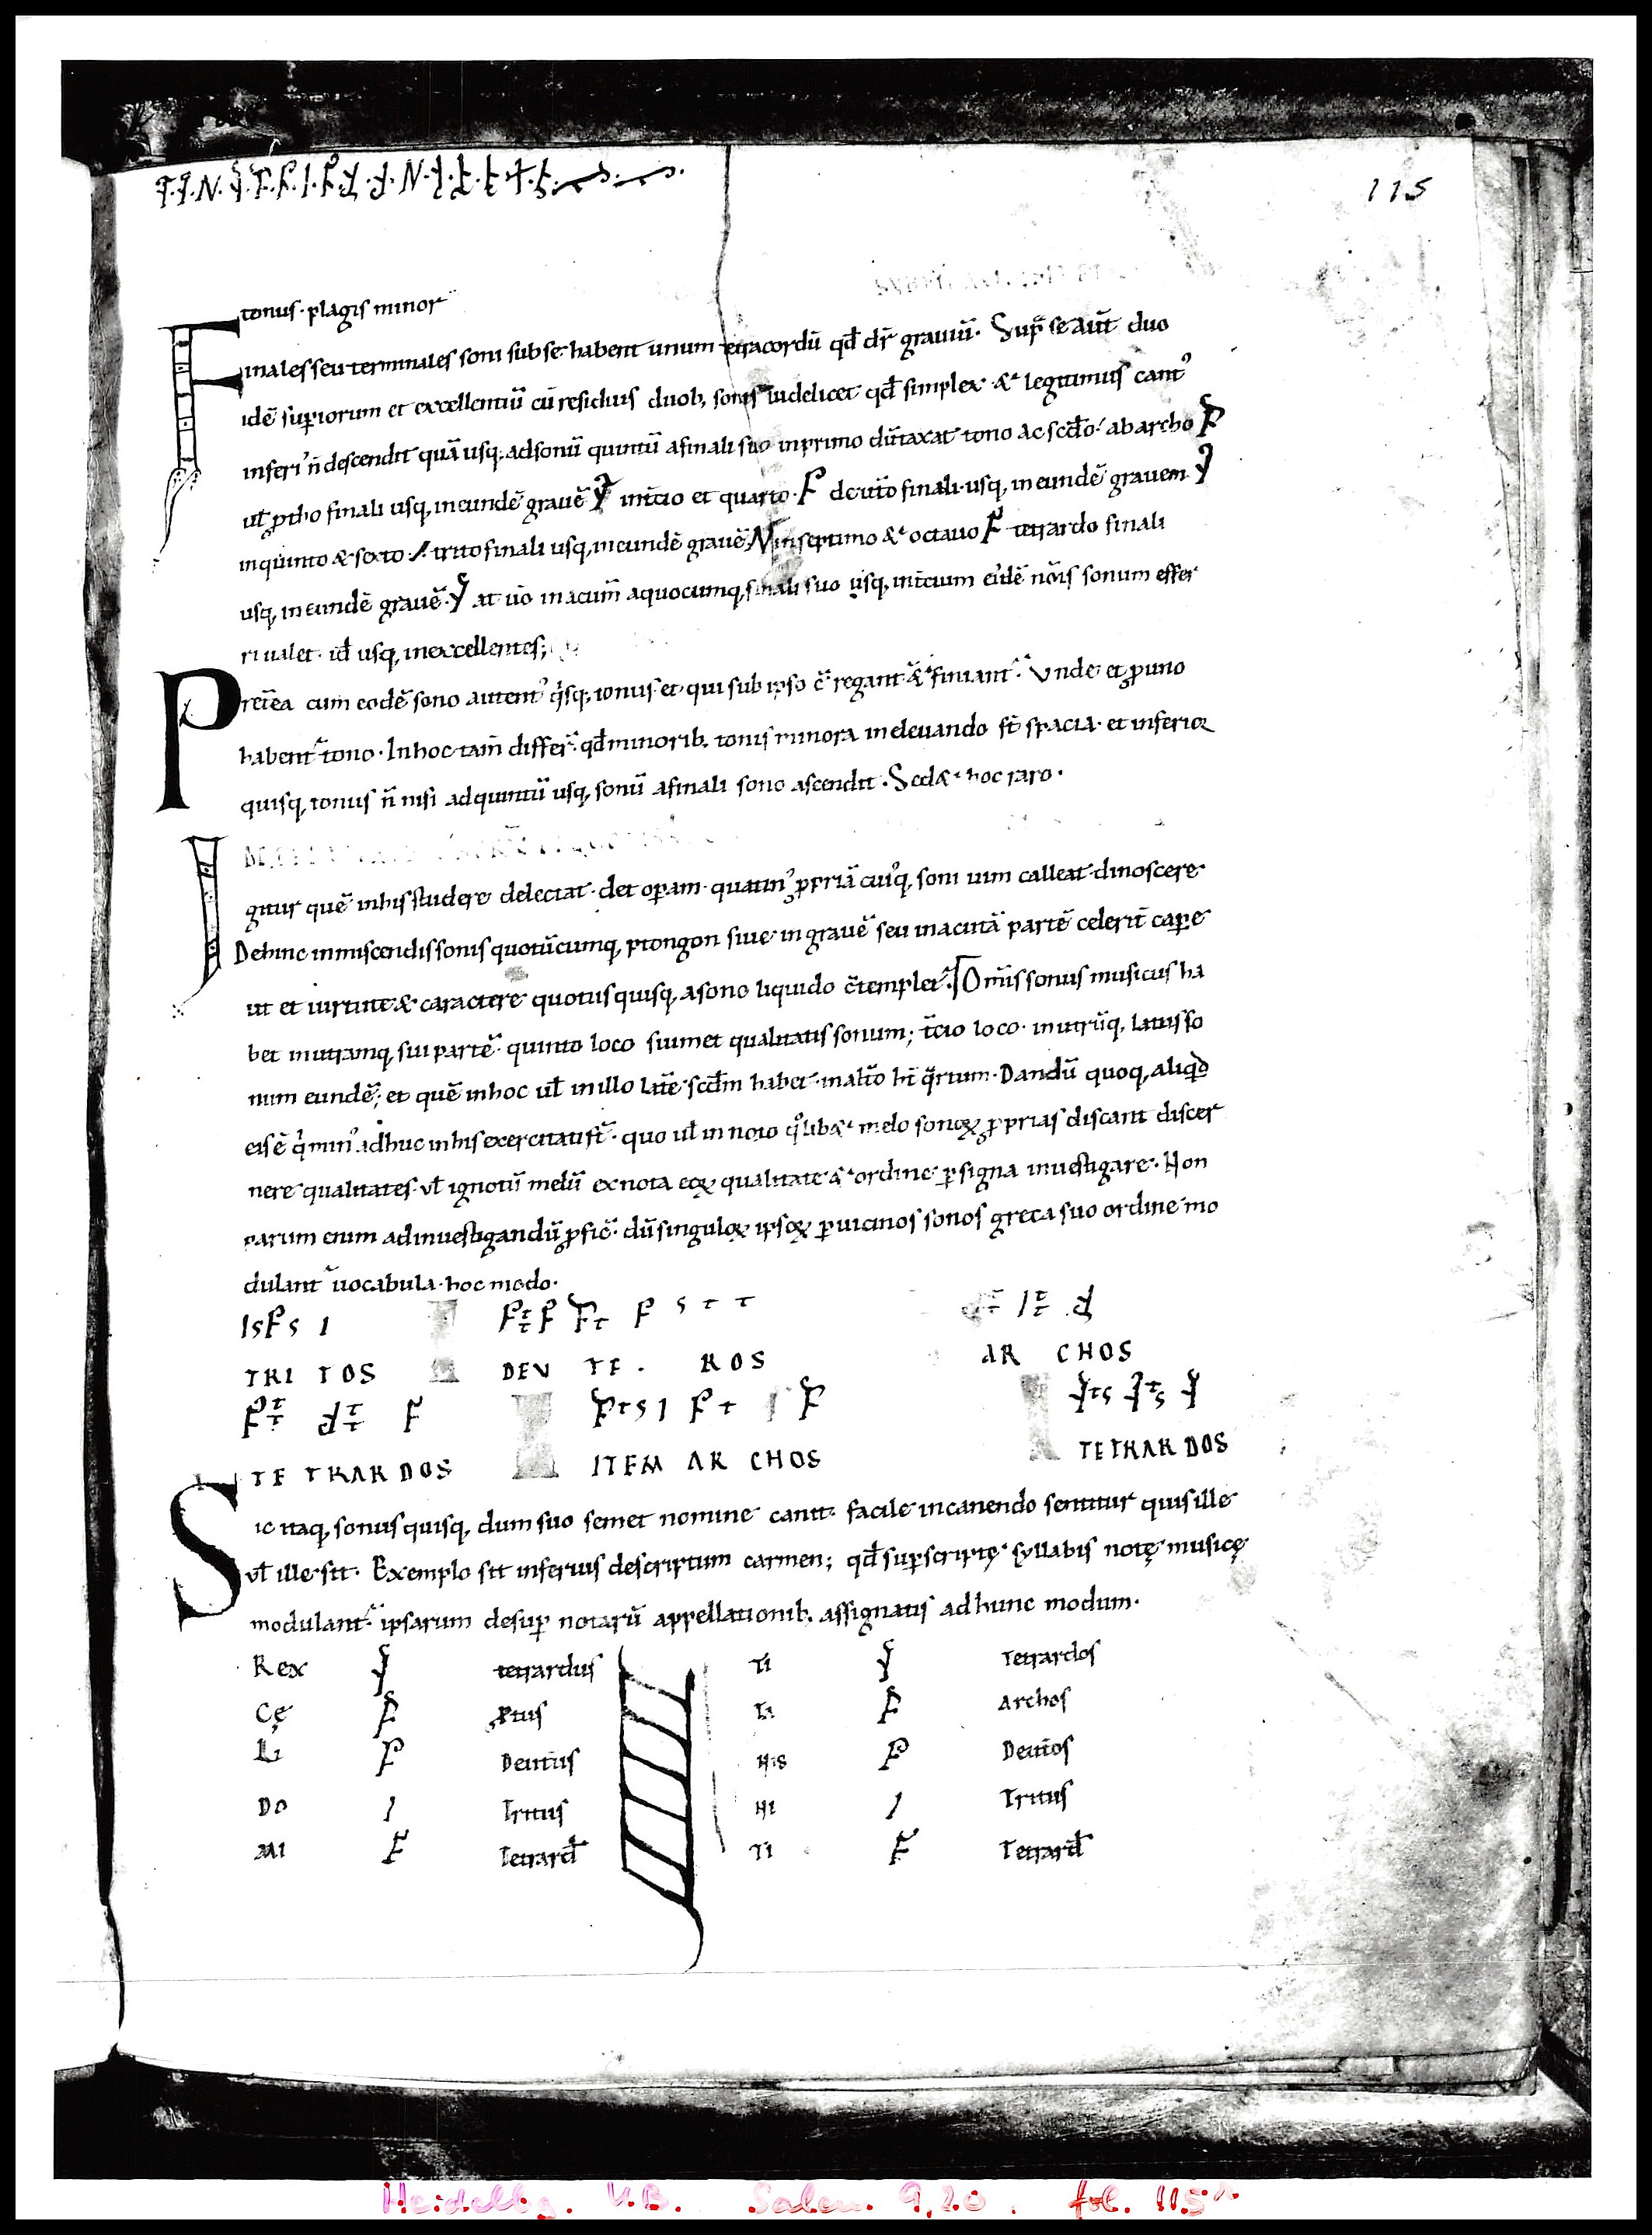 115
tonus· plagis minor
Finales seu terminales soni sub se habent unum tetracordū qđ dr̄ grauiū· Sup̄ se aūt duo
idē sup̱iorum et excellentiū cū residuis duob; sonis uidelicet qđ simplex & legitimus cantꝰ
inferiꝰ n̄ descendit quā usq; ad sonū quintū a finali suo in primo dūtaxat tono ac scđo· ab archo
uł ꝓtho finali usq; in eundē grauē tertio et quarto· deut̄o finali· usq; in eundē grauem
in quinto & sexto trito finali usq; in eundē grauē in septimo & octauo tetrardo finali
usq; in eundē grauē· at uō in acum̄ a quocumq; finali suo usq; in tcium eiꝰdē nōis sonum effer
ri ualet· id usq; in excellentes;
Pret̄ea cum eodē sono autentꝰ q̇sq; tonus et qui sub ipso ē regant̃ & finiant̃· Vnde et ꝓ uno
habent̃ tono· In hoc tam̄ differ̃· qđ minorib; tonis minora in eleuando st̄ spacia· et inferior
quisq; tonus n̄ nisi ad quintū usq; sonū a finali sono ascendit· Sed & hoc raro·
Igitur quē in his studere delectat· det op̱am· quatinꝰ ꝓpriā cuiꝰq; soni uim calleat dinoscere
Dehinc in miscendis sonis quotūcumq; ptongon siue in grauē seu in acutā partē celerit̄ cap̱e
ut et uirtute & caractere quotus quisq; a sono liquido c̄templet̃· Om̄is sonus musicus ha
bet in utramq; sui partē quinto loco suimet qualitatis sonum; t̄cio loco· in utrūq; latus so
num eundē; et quē in hoc uł in illo lat̄e scđm habet· in alt̄o ht̄ q̄rtum· Dandū quoq; aliqđ
eis ē q̇ minꝰ adhuc in his exercitati st̄· quo uł in noto q̊lib& melo sonoꝝ ꝓprias discant discer
nere qualitates· uł ignotū melū ex nota eoꝝ qualitate & ordine p̱ signa inuestigare· Non
parum enim ad inuestigandū ꝓfic̄· dū singuloꝝ ipsoꝝ p̱ uicinos sonos greca suo ordine mo
dulant̃ uocabula· hoc modo·
TRI TOS DEV TE· ROS AR CHOS
TE TRAR DOS ITEM AR CHOS TETRAR DOS
Sic itaq; sonus quisq; dum suo semet nomine canit· facile in canendo sentitur quis ille
uł ille sit· Exemplo sit inferius descriptum carmen; qđ sup̱scriptę syllabis notę musicę
modulant̃ ipsarum desup̱ notarū appellationib; assignatis ad hunc modum·
Rex tetrardus Ti Tetrardos
Cę ꝓtus Ta Archos
Li Deut̄us His Deut̄os
Do Tritus Hi Tritus
Mi Tetrarđ Ti Tetrarđ
Heidelbg. U.B. Salem. 9,20. fol. 115r